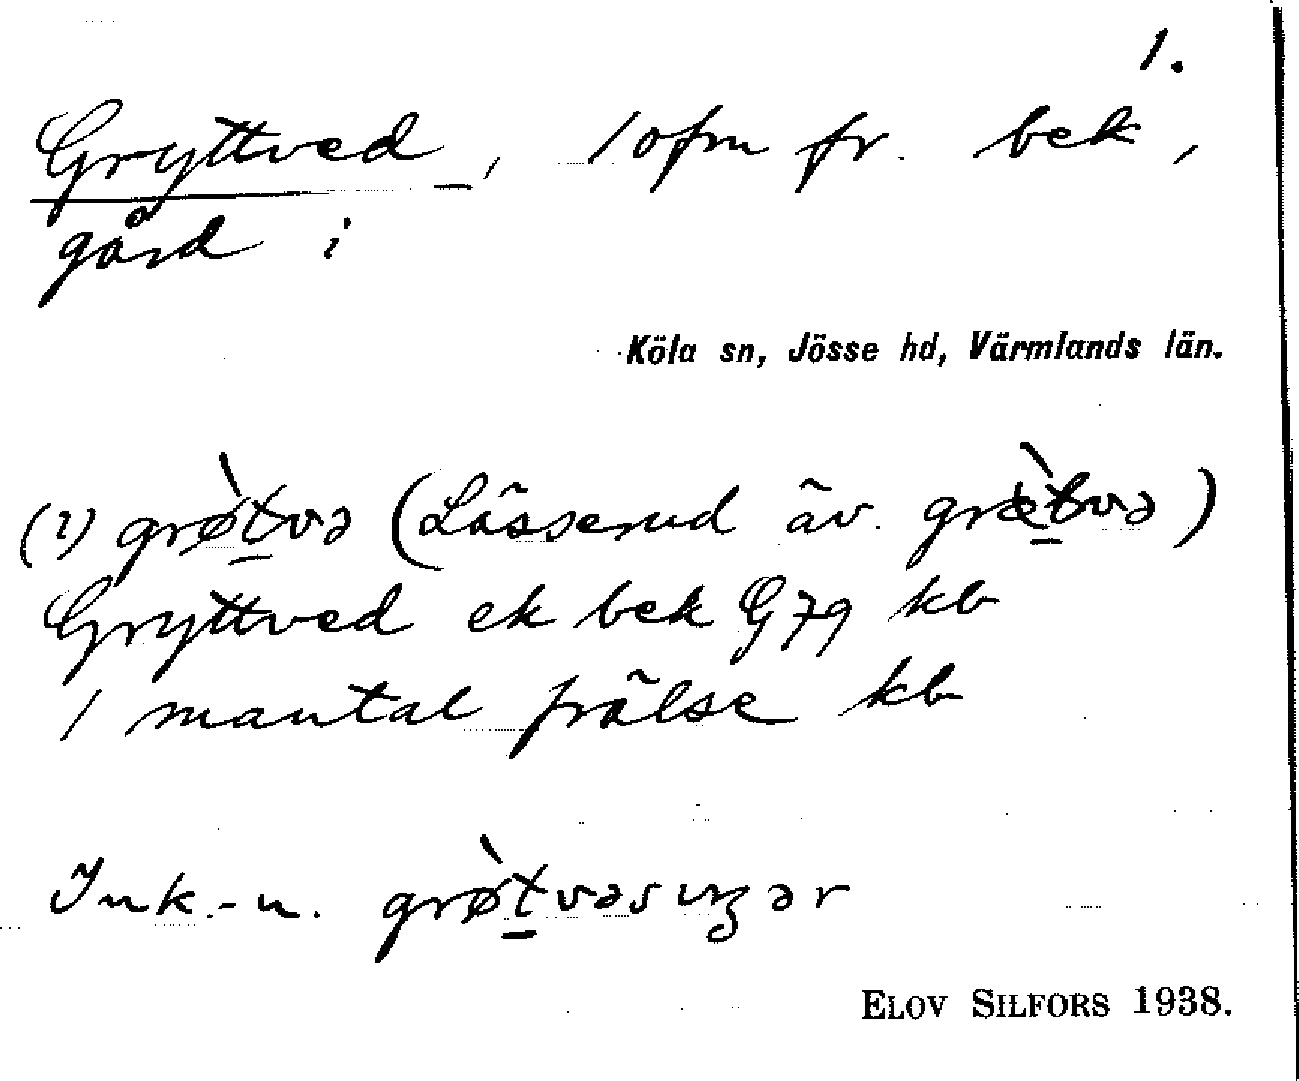 1.
Gryttved, 1 ofm fr. bek,
gård i
Köla sn, Jösse hd, Värmlands län.
(i) grø̀tvə (Lässerud äv. grètvə)
Gryttved ek bek G 79 kb
1 mantal frälse kb
Ink.-n. grø̀tvəsuŋər
ELOV SILFORS 1938.